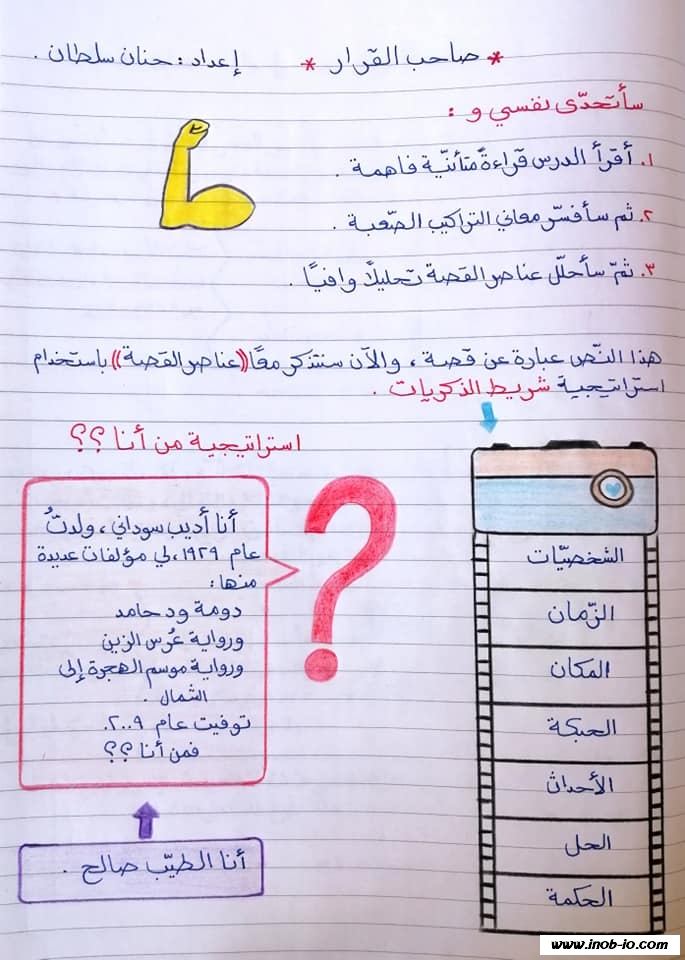 * صاحب القرار * إعداد : حنان سلطان .
سأتحدّى نفسي و :
١. أقرأ الدرس قراءةً متأنيّة فاهمة .
٢. ثم سأفسّر معاني التراكيب الصّعبة .
٣. ثمّ سأحلّل عناصر القصة تحليلًا وافيًا .
هذا النّص عبارة عن قصة ، والآن سنتذكر معًا ((عناصر القصة)) باستخدام
استراتيجية شريط الذكريات .
استراتيجية من أنا ؟؟
أنا أديب سوداني ، ولدتُ
عام ١٩٢٩ ، لي مؤلفات عديدة
منها :
دومة ود حامد
ورواية عُرس الزين
ورواية موسم الهجرة إلى
الشمال .
توفيت عام ٢٠٠٩.
فمن أنا ؟؟
أنا الطيّب صالح .
الشخصيّات
الزّمان
المكان
الحبكة
الأحداث
الحل
الحكمة
www.inob-io.com